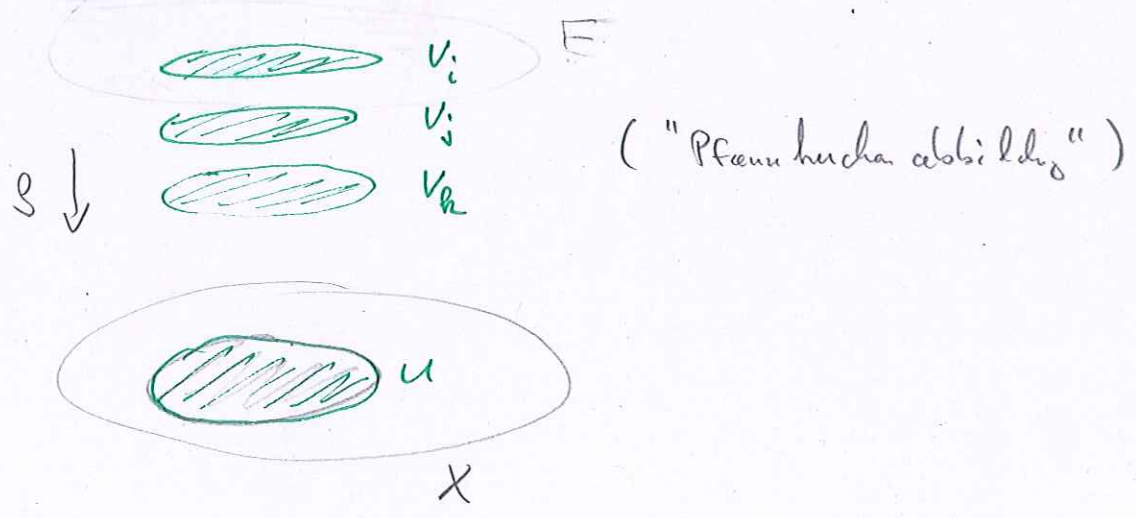 E
V_i
V_j
("Pfannkuchenabbildung")
V_k
U
X